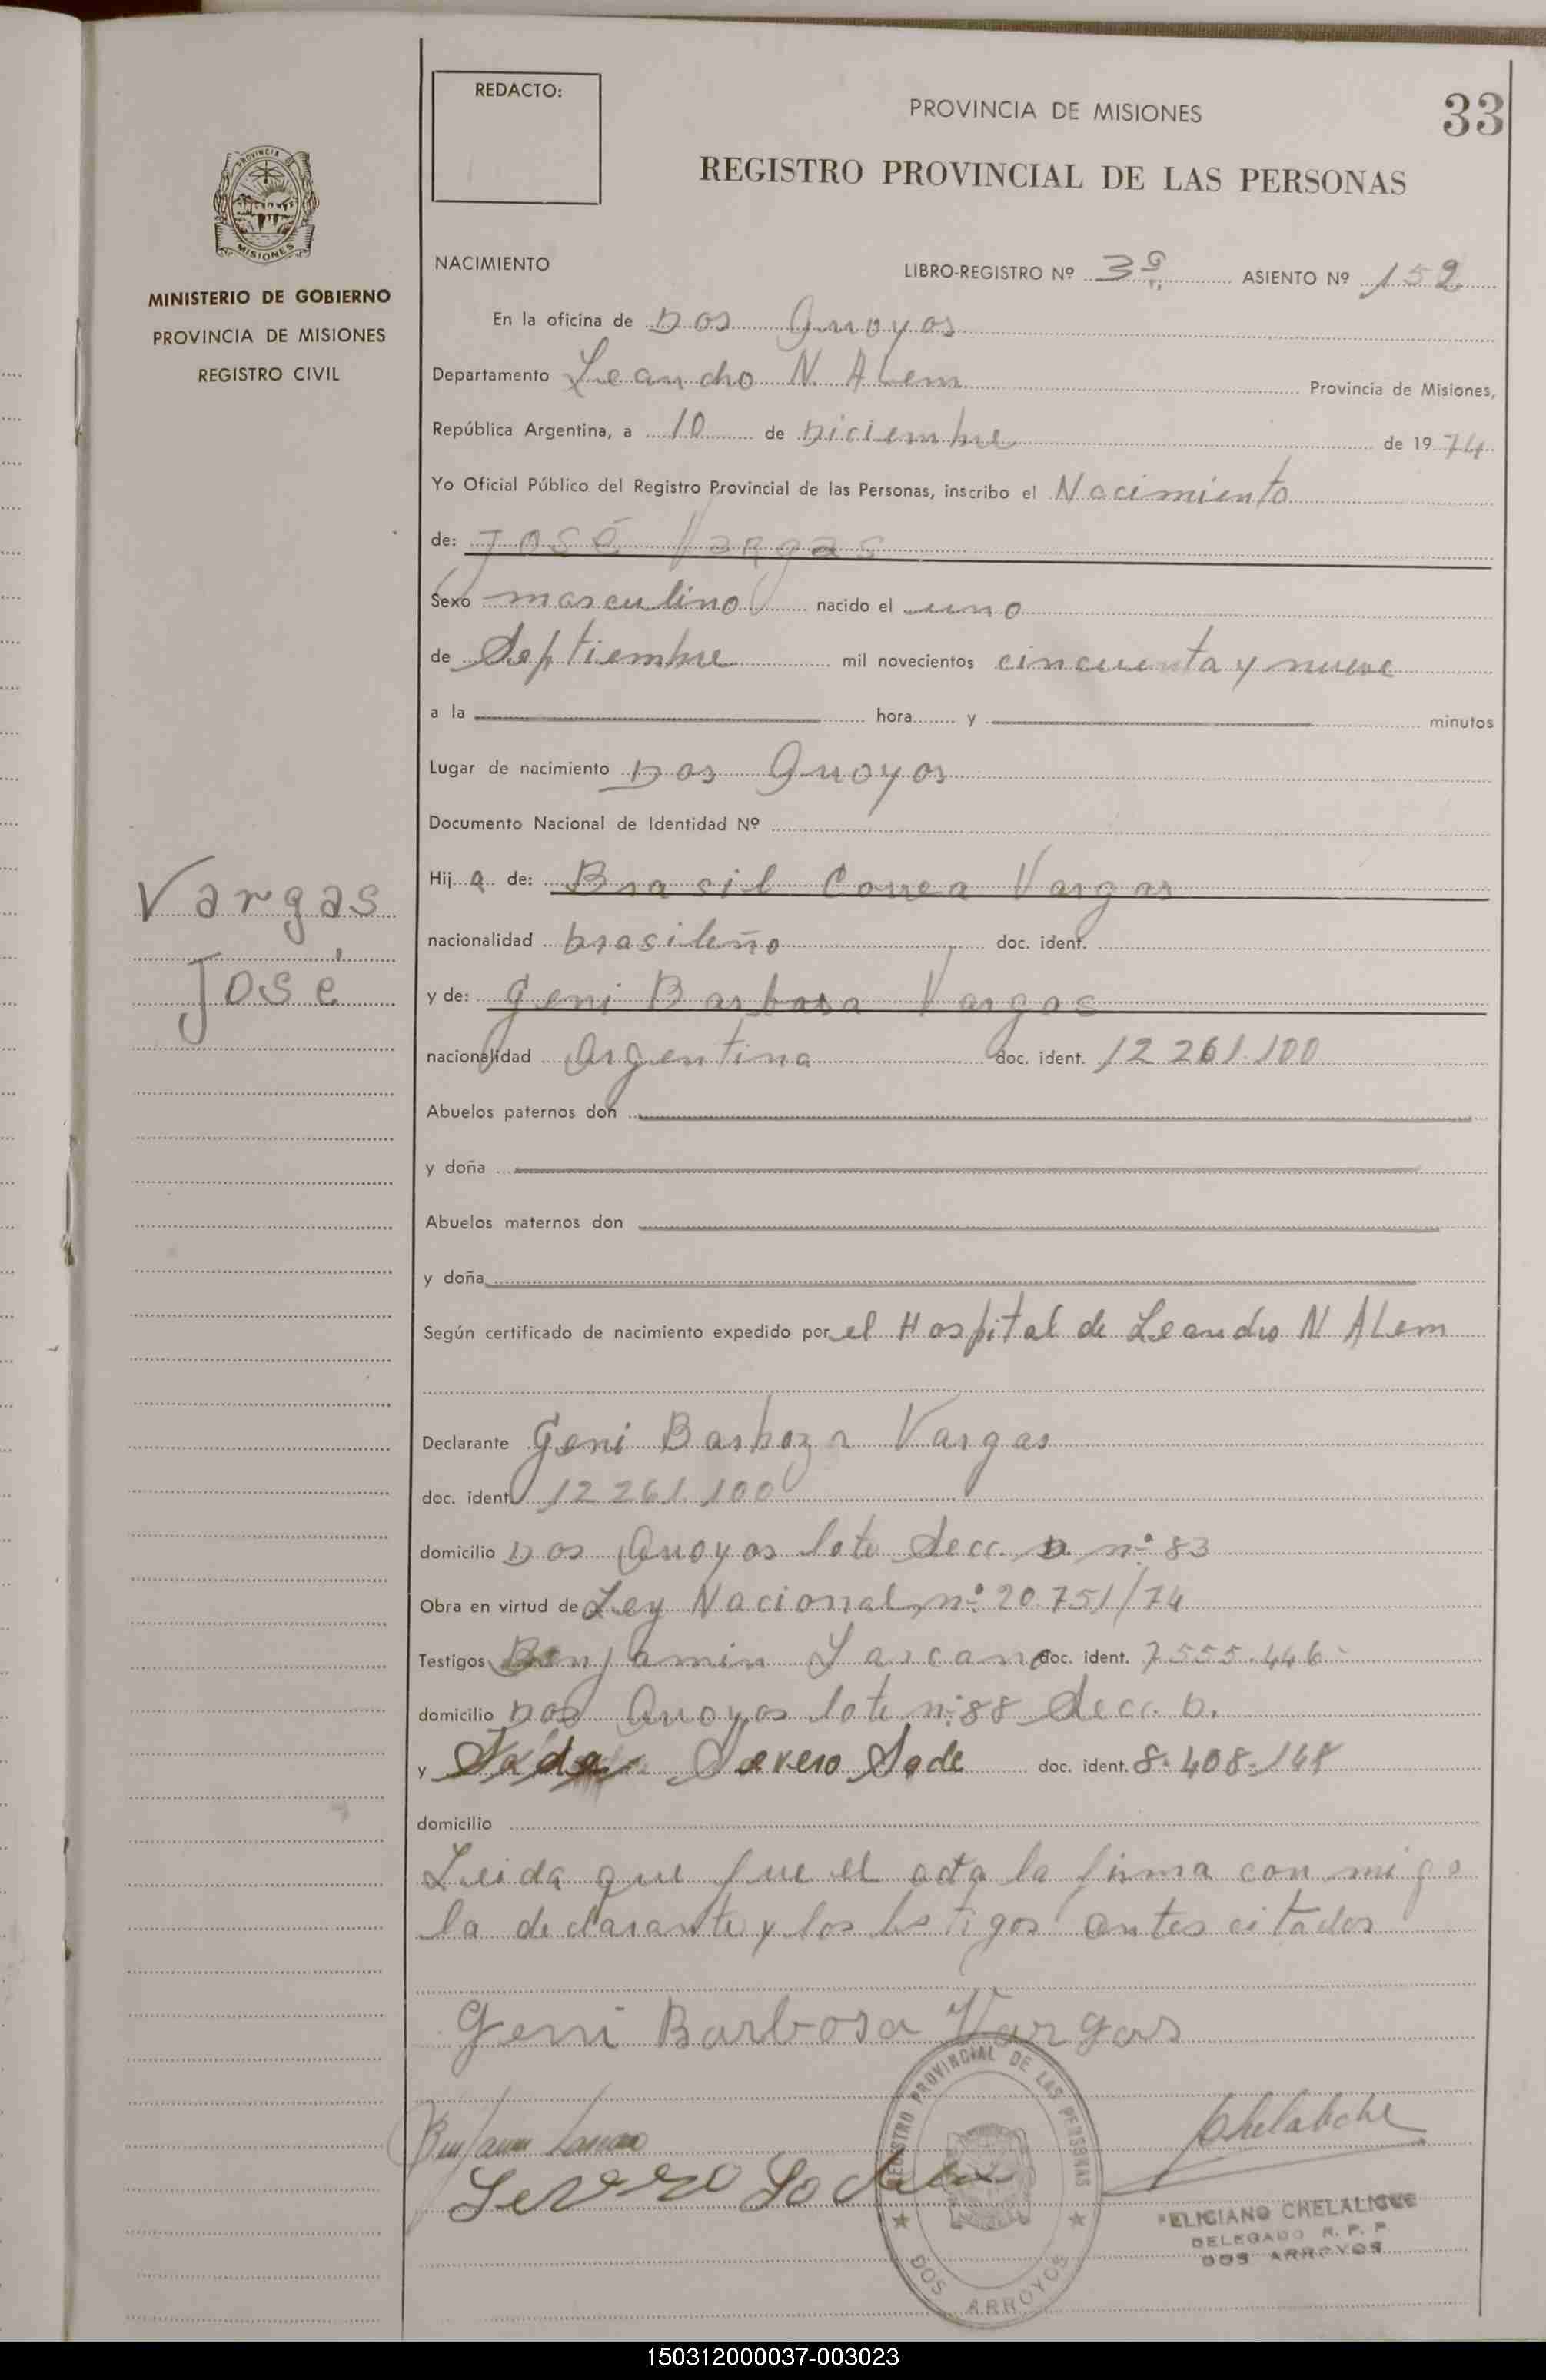 REDACTO:
PROVINCIA DE MISIONES
33
REGISTRO PROVINCIAL DE LAS PERSONAS
PROVINCIA DE
MISIONES
MINISTERIO DE GOBIERNO
PROVINCIA DE MISIONES
REGISTRO CIVIL
NACIMIENTO LIBRO-REGISTRO Nº 3º ASIENTO Nº 152
En la oficina de Dos Arroyos
Departamento Leandro N. Alem Provincia de Misiones,
República Argentina, a 10 de Diciembre de 1974
Yo Oficial Público del Registro Provincial de las Personas, inscribo el Nacimiento
de: José Vargas
Sexo masculino nacido el uno
de Septiembre mil novecientos cincuenta y nueve
a la hora y minutos
Lugar de nacimiento Dos Arroyos
Documento Nacional de Identidad Nº
Vargas
José
Hij a de: Brasil Correa Vargas
nacionalidad brasileño doc. ident.
y de: Geni Barbosa Vargas
nacionalidad Argentina doc. ident. 12 261.100
Abuelos paternos don
y doña
Abuelos maternos don
y doña
Según certificado de nacimiento expedido por el Hospital de Leandro N Alem
Declarante Geni Barboza Vargas
doc. ident 12 261.100
domicilio Dos Arroyos lote Secc. D nº 83
Obra en virtud de Ley Nacional nº 20.751/74
Testigos Benjamin Lascano doc. ident. 7555.446
domicilio Dos Arroyos lote nº 88 Secc. D.
y Severo Sode doc. ident. 8.408.148
domicilio
Leida que fue el acta la firma con migo
la declarante y los testigos antes citados
Geni Barbosa Vargas
REGISTRO PROVINCIAL DE LAS PERSONAS
DOS ARROYOS
Severo
FELICIANO CHELALICHE
DELEGADO R. P. P.
DOS ARROYOS
150312000037-003023